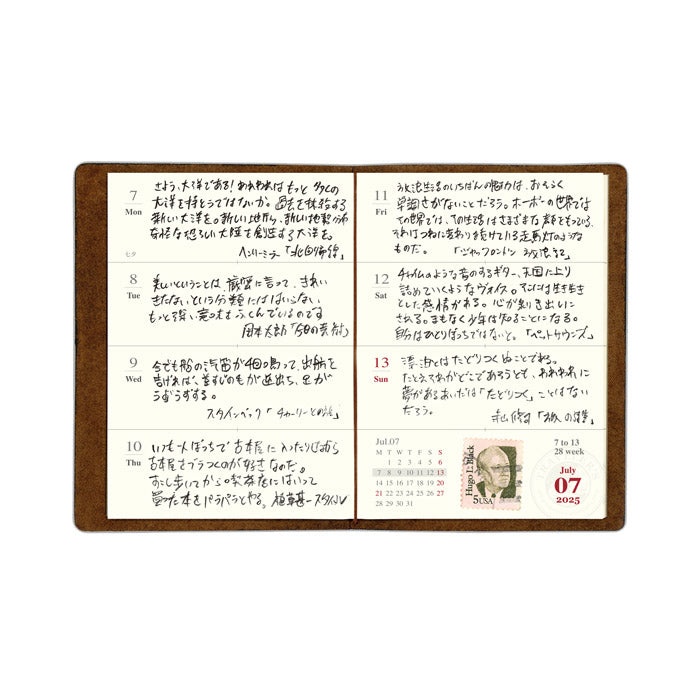 7
Mon
七夕
さよう、大洋である! われわれはもっと 多くの
大洋を持とうではないか。過去を抹殺する
新しい大洋を。新しい地形、新しい地貌
奇怪な恐ろしい大陸を創造する大洋を。
ヘンリーミラー「北回帰線」
8
Tue
美しいということは、厳密に言って、きれい
きたないという分類にはいらない、
もっと深い意味をふくんでいるのです
岡本太郎「今日の芸術」
9
Wed
今でも船の汽笛が4回鳴って、出航を
告げれば、首すじのもが逆立ち、足が
うずうずする。
スタインベック「チャーリーとの旅」
10
Thu
いつも一人ぼっちで古本屋に入ったりしながら
古本屋をブラつくのが好きなのだ。
すこし歩いてから、喫茶店にはいって
買った本をパラパラとやる。植草甚一スタイル
11
Fri
放浪生活のいちばんの魅力は、おそらく
単調さがないことだろう。ホーボーの世界では
その生活はさまざまな顔をもっている
それはつねに変わり続けている走馬灯のような
ものだ。「ジャック・ロンドン 放浪記」
12
Sat
のような音のするギター、天国に
詰めていくようなヴォイス。そこには生き生き
とした感情がある。心が剥き出しに
される。まもなく少年は知ることになる。
自分はひとりぼっちではないと。「ペット・サウンズ」
13
Sun
漂泊とはたどりつくぬことである。
たとえそれがどこであろうとも、われわれに
夢があるあいだは「たどりつく」ことはない
だろう。
寺山修司「旅の詩集」
Jul.07
M T W T F S S
1 2 3 4 5 6
7 8 9 10 11 12 13
14 15 16 17 18 19 20
21 22 23 24 25 26 27
28 29 30 31
Hugo L. Black
5USA
7 to 13
28 week
July
07
2025